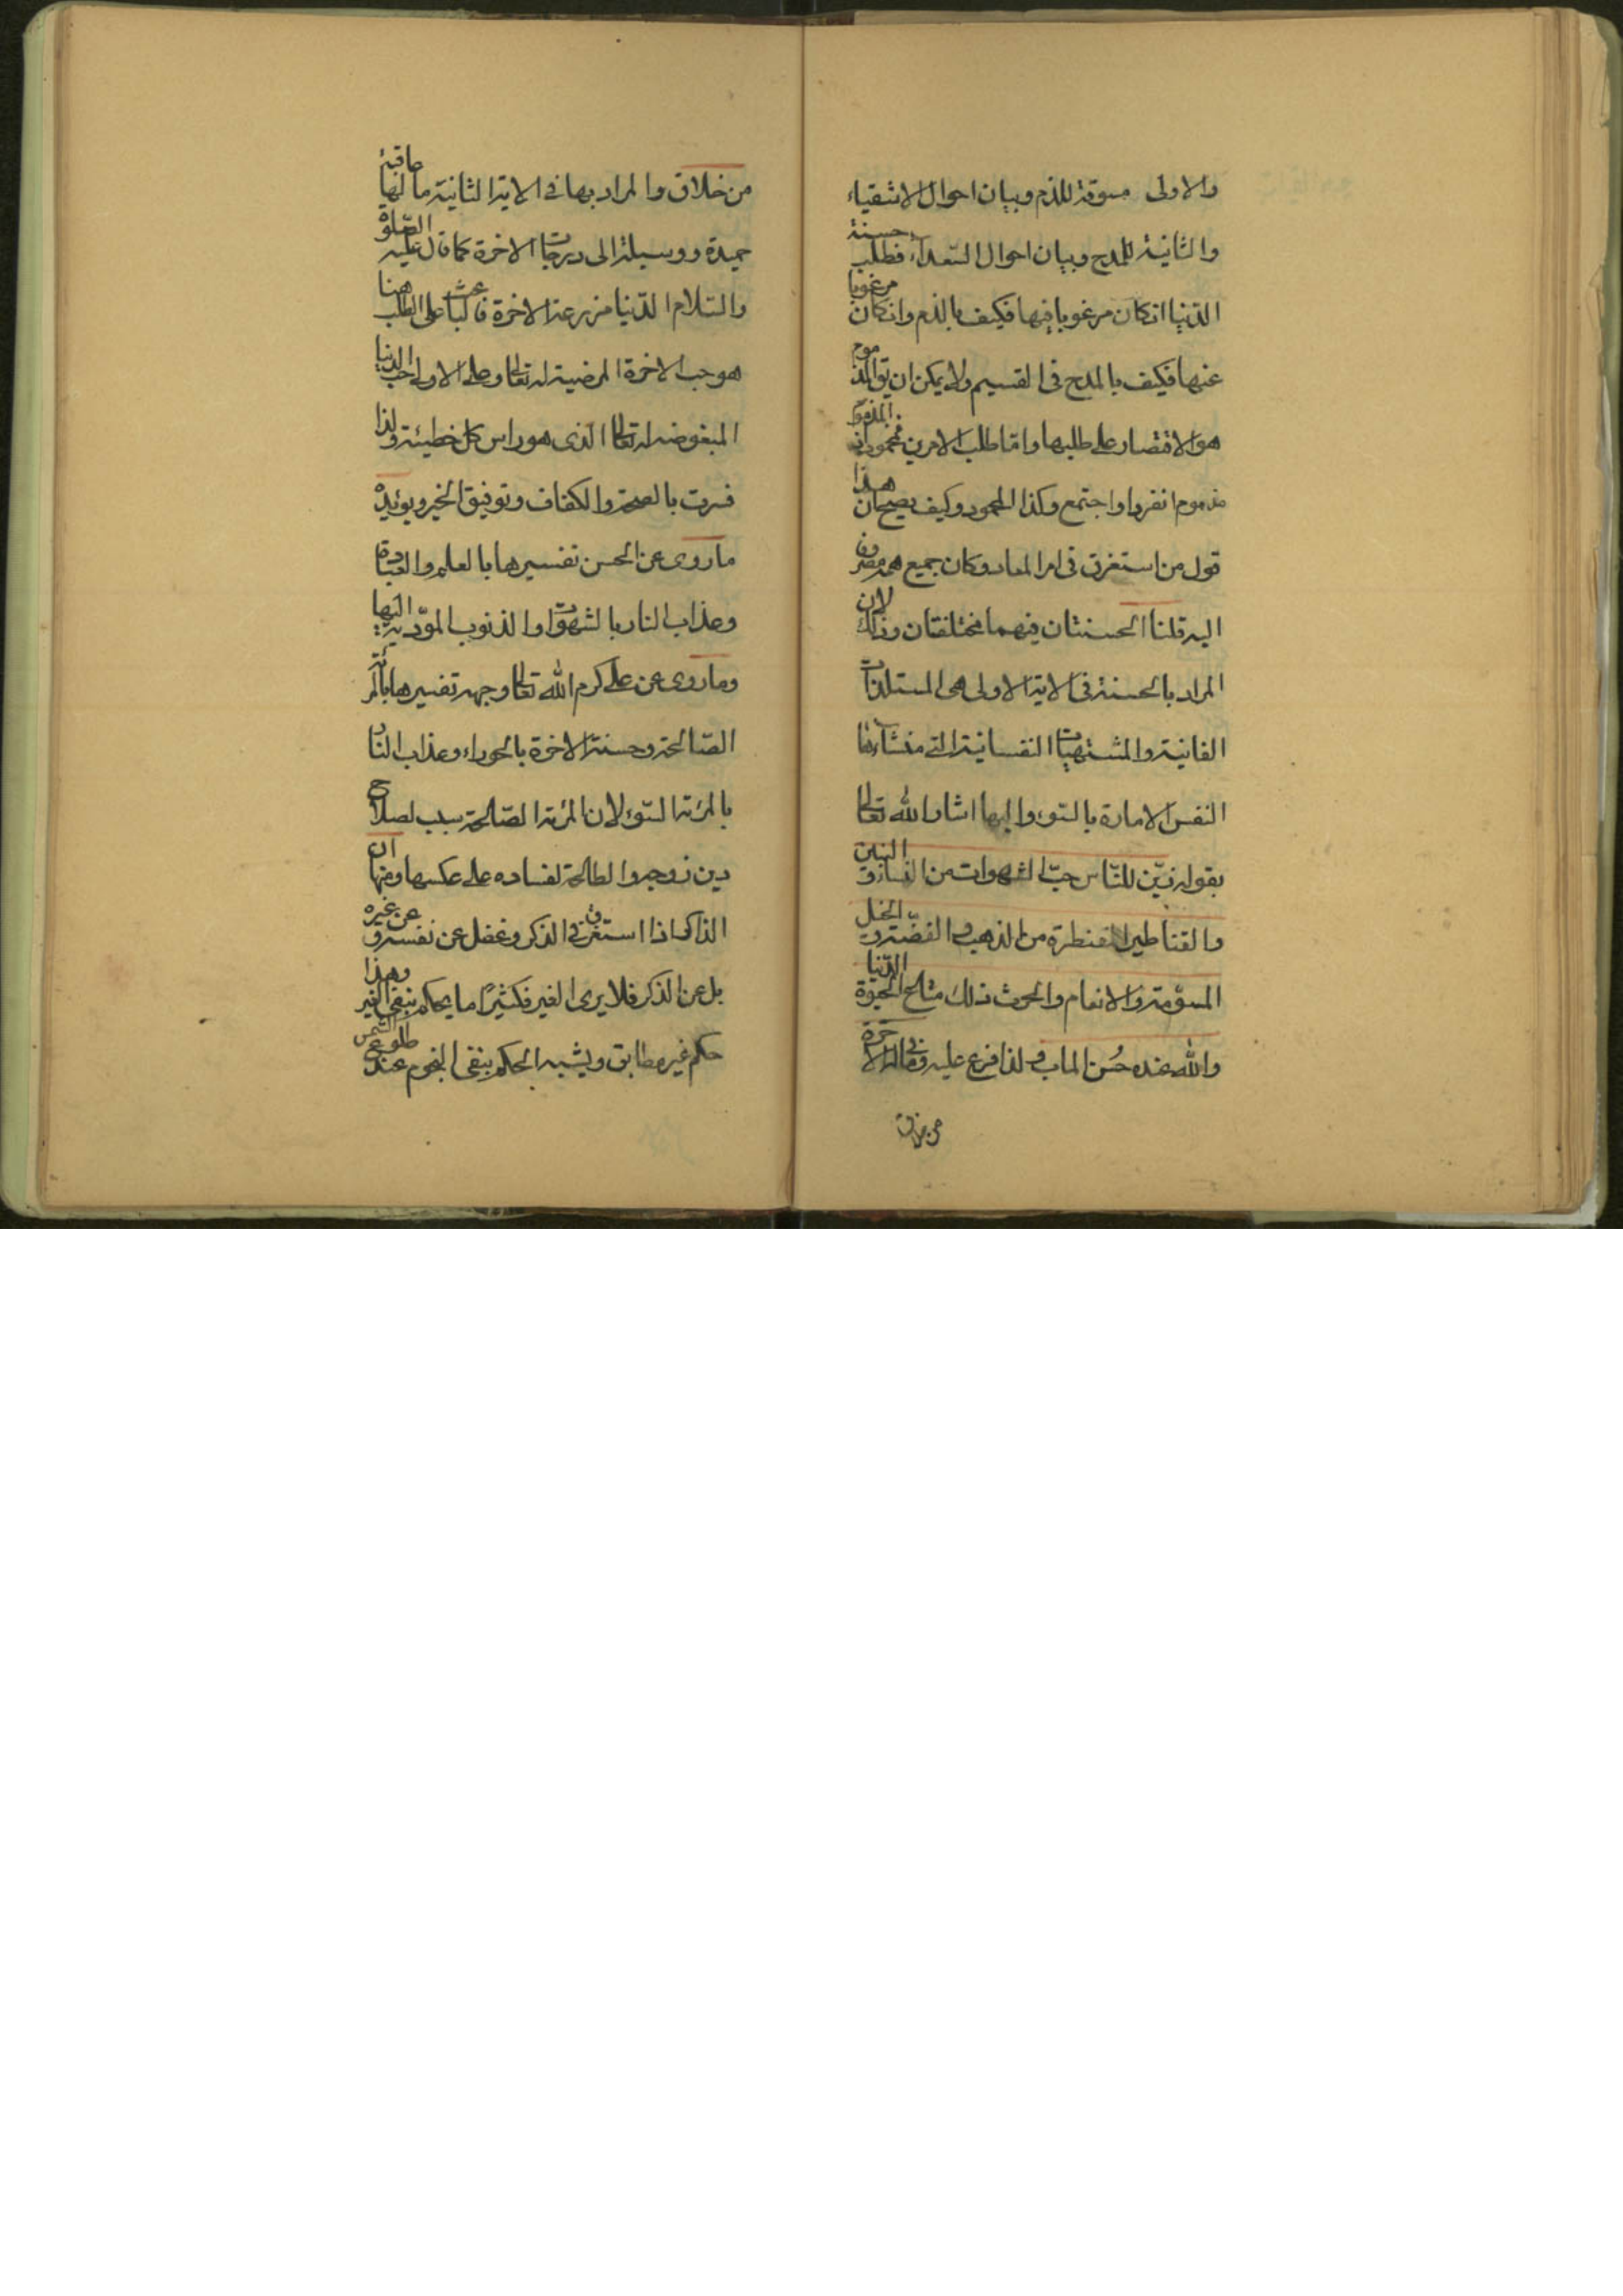 والاولى مسوقة للذم وبيان احوال الاشقياء
والثانية للمدح وبيان احوال السّعداء فطلب حسنة
الدّنيا انكان مرغوبا فيها فكيف بالذم وانكان مرغوبا
عنها فكيف بالمدح فى القسيم ولا يمكن ان يق المذموم
هو الاقتصار على طلبها وامّا طلب الامرين فمحمود لان المذموم
مذموم انفرد او اجتمع وكذا المحمود وكيف يصح ان هذا
قول من استغرق فى امر المعاد وكان جميع همه مصروف
اليه قلنا الحسنتان فيهما مختلفتان وذلك لان
المراد بالحسنة فى الاية الاولى هى المستلذات
الفانية والمشتهيات النفسانية التى منشاءها
النفس الامارة بالسّوء واليها اشار الله تعالى
بقوله زيّن للنّاس حبّ الشهوات من النساء و البنين
والقناطير المقنطرة من الذهب و الفضّة و الخيل
المسوّمة والانعام والحرث ذلك متاع الحيوة الدّنيا
والله عنده حُسن الماب و لذا فرع عليه وماله فى الاخرة
من خلاق
من خلاق والمراد بها فى الاية الثانية ما لها عاقبة
حميدة ووسيلة الى درجات الاخرة كما قال عليه الصّلوة
والسّلام الدّنيا مزرعة الاخرة فالباعث على الطلب هنا
هو حب الاخرة المرضية له تعالى وعلى الاول حب الدنيا
المبغوضه له تعالى الّذى هو راس كل خطيئة ولذا
فسرت بالصحة والكفاف وتوفيق الخير ويؤيده
ما روى عن الحسن تفسيرها بالعلم والعبادة
وعذاب النار بالشهوات والذنوب المؤدّية اليها
وما روى عن على كرم الله تعالى وجهه تفسيرها بالمرئة
الصّالحة وحسنة الاخرة بالحوراء وعذاب النار
بالمرئة السّوء لان المرئة الصّالحة سبب لصلاح
دين زوجه والطالحة لفساده على عكسها ومنها ان
الذاكر اذا استغرق فى الذكر وغفل عن نفسه و عن غيره
بل عن الذكر فلا يرى الغير فكثيرًا ما يحكم بنفى الغير وهذا
حكم غير مطابق ويشبه الحكم بنفى النجوم عند طلوع الشمس